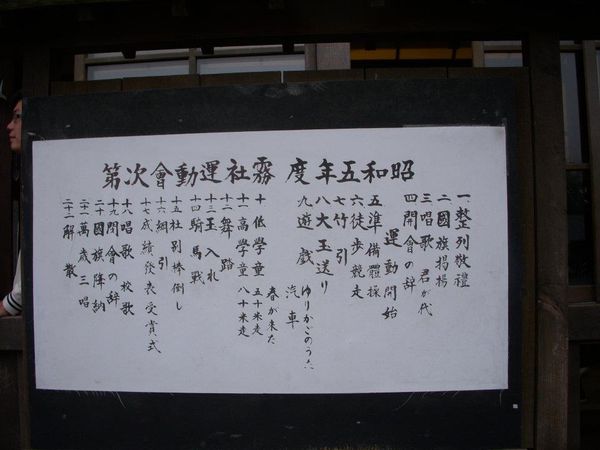 昭和五年度霧社運動會次第
一整列敬禮
二國旗掲揚
三唱歌 君が代
四開會の辞
運動開始
五準備體操
六徒歩競走
七竹引
八大玉送り
九遊戯 ゆりかごのうた
汽車
春が来た
十低學童 五十米走
十一高學童 八十米走
十二舞踊
十三玉入れ
十四騎馬戰
十五社別棒倒し
十六綱引
十七成績發表受賞式
十八唱歌 校歌
十九閉會の辞
二十國旗降納
二十一萬歲三唱
二十二解散